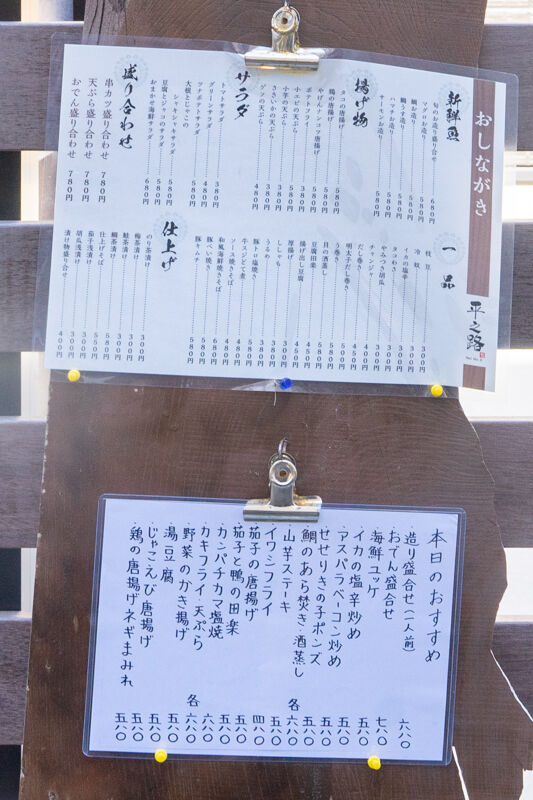 おしながき
平之路
新鮮魚
旬のお造り盛り合わせ 680円
マグロお造り 580円
鯛お造り 580円
鯛ユず造り 580円
ハマチお造り 580円
サーモンお造り 580円
揚げ物
タコの唐揚げ 580円
鶏の唐揚げ 580円
やげんナンコツ唐揚げ
ポテトフライ
小エビの天ぷら
小芋の天ぷら
ささいかの天ぷら
ゲソの天ぷら 480円
サラダ
トマトサラダ 380円
グリーンサラダ 480円
ツナポテトサラダ 580円
大根とじゃこの
シャキシャキサラダ 580円
豆腐とジャコのサラダ 580円
おまかせ海鮮サラダ 680円
盛り合わせ
串カツ盛り合わせ 780円
天ぷら盛り合わせ 780円
おでん盛り合わせ 780円
一品
枝豆 300円
冷奴 300円
イカの塩辛 300円
タコわさ 300円
やみつき胡瓜 300円
チャンジャ 400円
だし巻き 450円
明太子だし巻き 500円
う巻き 550円
貝の酒蒸し 580円
豆腐田楽 450円
揚げ出し豆腐 450円
厚揚げ 400円
ししゃも 380円
うるめ 380円
豚トロ塩焼き 580円
牛スジどて煮 480円
ソース焼きそば 480円
和風海鮮焼きそば 680円
豚ぺい焼き 580円
豚キムチ 580円
仕上げ
のり茶漬け 300円
梅茶漬け 300円
鮭茶漬け 300円
鯛茶漬け 500円
仕上げそば 580円
茄子浅漬け 350円
胡瓜浅漬け 300円
漬け物盛り合せ 400円
本日のおすすめ
・造り盛合せ(一人前) 六八〇
・おでん盛合せ 七八〇
・海鮮ユッケ 五八〇
・イカの塩辛炒め 五八〇
・アスパラベーコン炒め 五八〇
・せせりきの子ポンズ 五八〇
・鯛のあら焚き・酒蒸し 各六八〇
・山芋ステーキ 五八〇
・イワシフライ 五八〇
・茄子の唐揚げ 四八〇
・茄子と鴨の田楽 五八〇
・カンパチカマ塩焼 六八〇
・カキフライ・天ぷら 各六八〇
・野菜のかき揚げ 五八〇
・湯豆腐 五八〇
・じゃこえび唐揚げ 五八〇
・鶏の唐揚げネギまみれ 五八〇